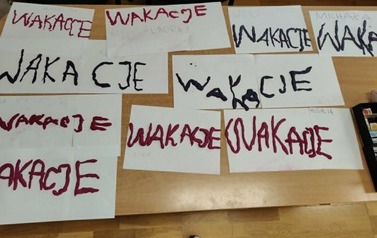 WAKACJE
WAKACJE
WAKACJE
WAKA
WAKACJE
WAKACJE
WAKACJE
WAKACJE
WAKACJE
AKACJE